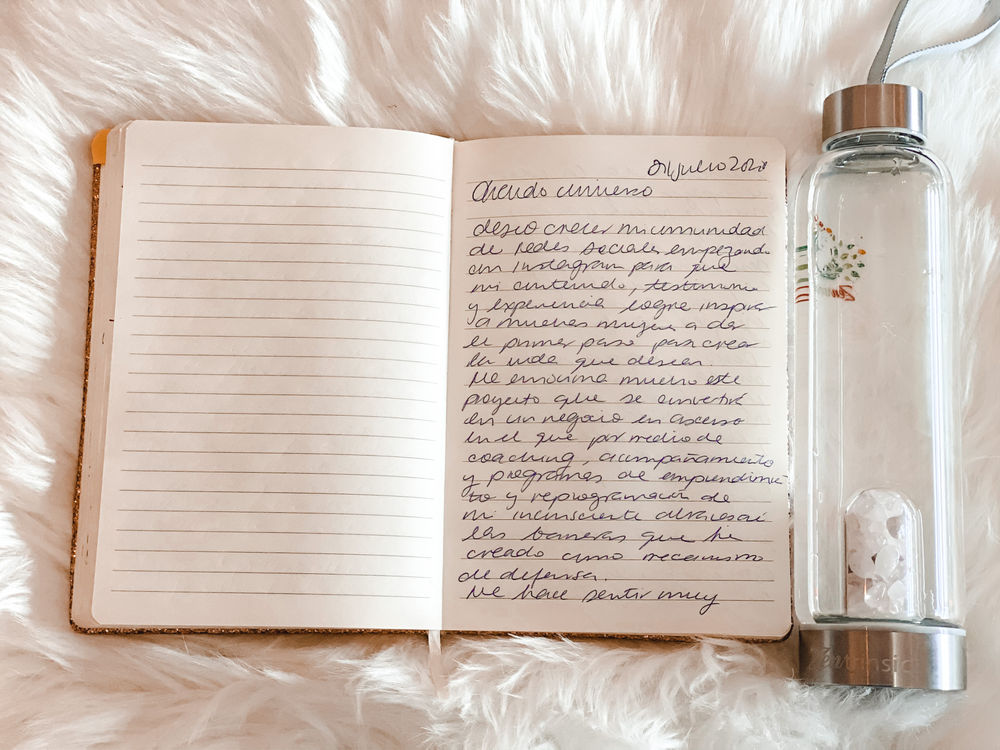 01/julio 202
Querido universo
deseo crecer mi comunidad
de redes sociales empezando
con Instagram para que
mi contenido, testimonio
y experiencia logre inspirar
a muchas mujeres a dar
el primer paso para crear
la vida que desean.
Me emociona mucho este
proyecto que se convertirá
en un negocio en ascenso
en el que por medio de
coaching, acompañamiento
y programas de emprendimien
to y reprogramación de
mi inconsciente atravesaré
las barreras que he
creado como mecanismo
de defensa.
Me hace sentir muy
intrinsic